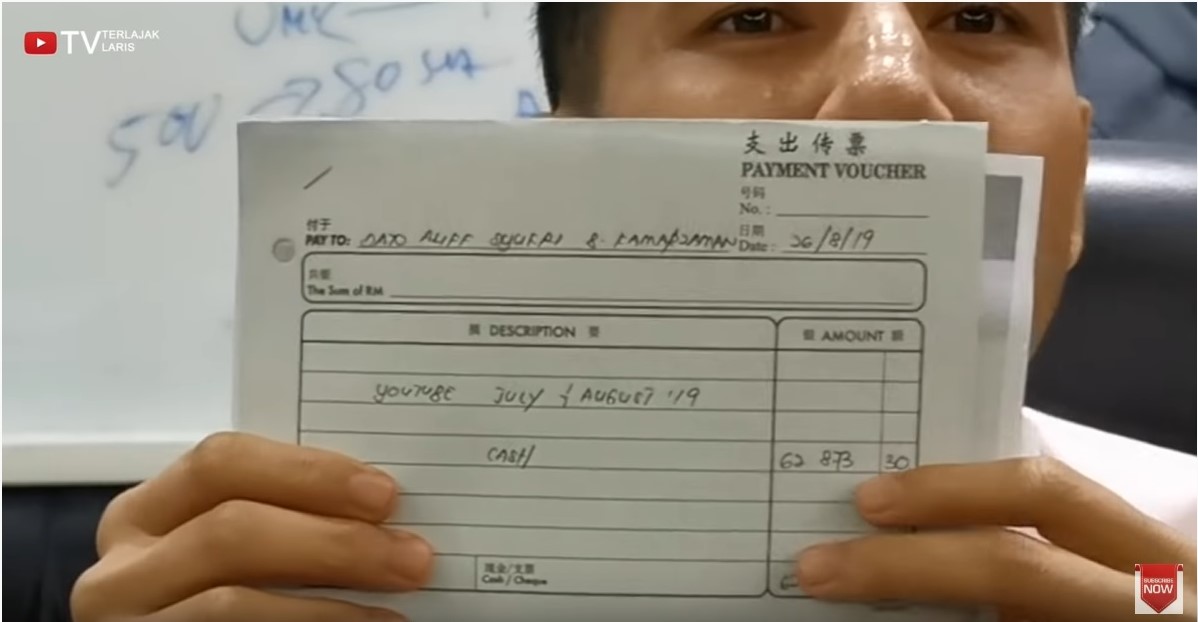 TV TERLAJAK
LARIS
50U → 80
支出传票
PAYMENT VOUCHER
号码
No. :
付于
PAY TO: DATO ALIFF SYUKRI B. KAMARZAMAN
日期
Date : 26/8/19
The Sum of RM
摘 DESCRIPTION 要
AMOUNT
YOUTUBE JULY & AUGUST '19
CASH 62 873 30
现金/支票
Cash / Cheque
SUBSCRIBE
NOW